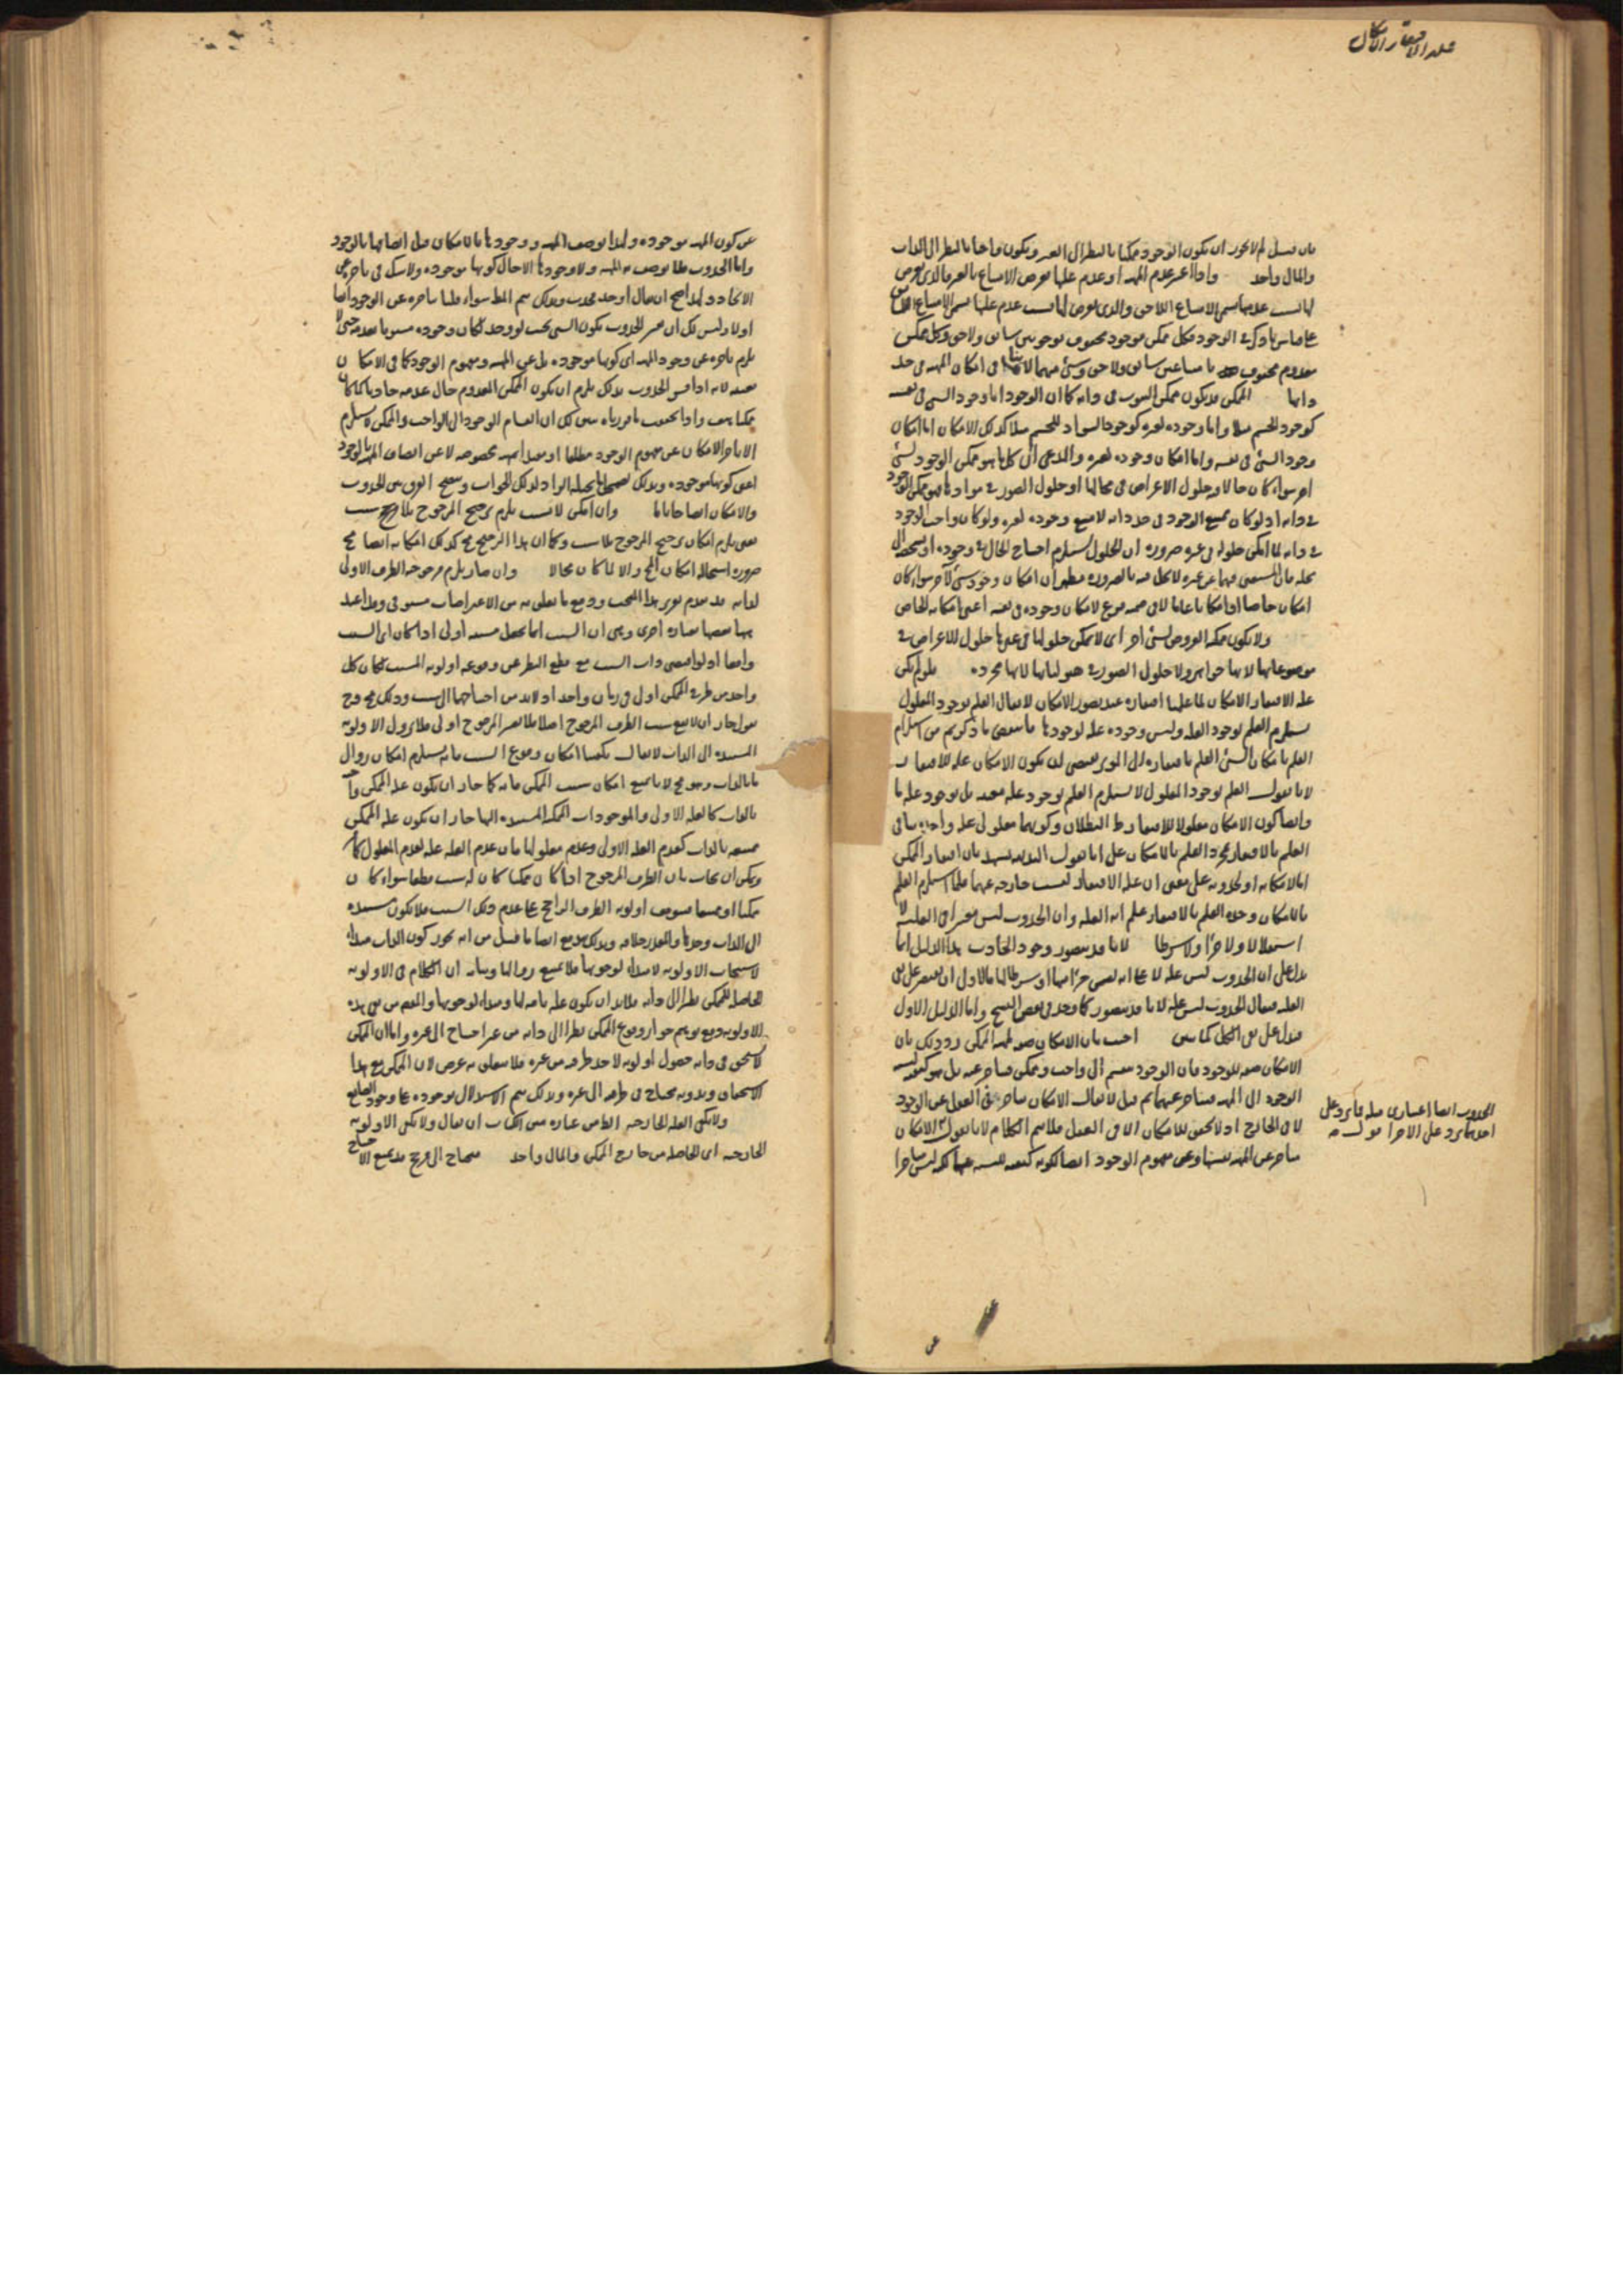 علة الافتقار الامكان
فان قيل لم لا يجوز ان يكون الوجود ممكنا بالنظر الى الغير ويكون واجبا بالنظر الى الذات
والمال واحد واذا اعتبر عدم المهية او عدم علتها يعرض الامتناع بالغير فالذى يعرض
لها بسبب عدمها يسمى الامتناع اللاحق والذى يعرض لها بسبب عدم علتها يسمى الامتناع السابق
على قياس ما ذكر فى الوجود فكل ممكن موجود محفوف بوجوبين سابق ولاحق وكل ممكن
معدوم محفوف بامتناعين سابق ولاحق وشئ منهما لا ينافى امكان المهية فى حد
ذاتها الممكن قد يكون ممكن الثبوت فى ذاته كما ان الوجود اما وجود الشئ فى نفسه
كوجود الجسم مثلا واما وجوده لغيره كوجود السواد للجسم مثلا كذلك الامكان اما امكان
وجود الشئ فى نفسه واما امكان وجوده لغيره والمدعى ان كل ما هو ممكن الوجود لشئ
اخر سواء كان حالا فيه حلول الاعراض فى محالها او حلول الصور فى موادها فهو ممكن الوجود
فى ذاته اذ لو كان ممتنع الوجود فى حد ذاته لامتنع وجوده لغيره ولو كان واجب الوجود
فى ذاته لما امكن حلوله فى غيره ضرورة ان الحلول يستلزم احتياج الحال فى وجوده او تشخصه الى
محله فان المستغنى فيهما عن غيره لا يحل فيه بالضرورة فظهر ان امكان وجود شئ لآخر سواء كان
امكان خاصا او امكانا عاما لا فى ضمنه فرع لامكان وجوده فى نفسه اعنى امكانه الخاص
ولا يكون ممكن العروض لشئ اخر اى لا يمكن حلولها فى غيرها حلول الاعراض فى
موضوعاتها لانها جواهر ولا حلول الصور فى هيولياتها لانها مجردة فلو لم يكن
علة الافتقار الامكان لما علمنا افتقاره عند تصور الامكان لا يقال العلم بوجود المعلول
يستلزم العلم بوجود العلة وليس وجوده علة لوجودها فانتقض ما ذكرتم من استلزام
العلم بامكان الشئ العلم بافتقاره الى الموثر يقتضى ان يكون الامكان علة للافتقار
لانا نقول العلم بوجود المعلول لا يستلزم العلم بوجود علة معينة بل بوجود علة ما
وايضا كون الامكان معلولا للافتقار ظ البطلان وكونهما معلولى علة واحدة ينافى
العلم بالافتقار بمجرد العلم بالامكان على انا نقول البديهة تشهد بان افتقار الممكن
اما لامكانه او لحدوثه على معنى ان علة الافتقار ليست خارجة عنهما فلما استلزم العلم
بالامكان وحده العلم بالافتقار علم انه العلة وان الحدوث ليس معتبرا فى العلية لا
استقلالا ولا جزءا ولا شرطا لانا قد نتصور وجود الحادث هذا الدليل انما
يدل على ان الحدوث ليس علة لا على انه ليس جزءا منها او شرطا لها فالاولى ان يقتصر على نفى
العلة فيقال الحدوث ليس علة لانا قد نتصور كما وجد فى بعض النسخ واما الدليل الاول
فيدل على نفى الكل كما بين اجيب بان الامكان صفة لمهية الممكن رد ذلك بان
الامكان صفة للوجود فان الوجود ينقسم الى واجب وممكن فتاخر عنه بل هو كيفية نسبة
الوجود الى المهية فيتاخر عنهما ثم قيل لا يقال الامكان يتاخر فى العقل عن الوجود
لا فى الخارج اذ لا تحقق للامكان الا فى العقل فلا يتم الكلام لانا نقول الامكان
متاخر عن المهية نفسها وعن مفهوم الوجود ايضا لكونه كيفية لنسبة بينهما لكنه ليس متاخرا
الحدوث ايضا اعتبارى مثله فما يرد على
احدهما يرد على الاخر
عن كون المهية موجودة ولهذا توصف المهية ووجودها بالامكان قبل اتصافها بالوجود
واما الحدوث فلا يوصف به المهية ولا وجودها الا حال كونها موجودة ولا شك فى تاخره عن
الايجاد ولهذا صح ان يقال اوجد فحدث وبذلك يتم المط سواء قلنا بتاخره عن الوجود ايضا
اولا وليس لك ان تفسر الحدوث بكون الشئ بحيث لو وجد لكان وجوده مسبوقا بعدمه حتى لا
يلزم تاخره عن وجود المهية اى كونها موجودة بل عن المهية ومفهوم الوجود كما فى الامكان
بعينه لانه اذا فسر الحدوث بذلك يلزم ان يكون الممكن المعدوم حال عدمه حادثا كما كان
ممكنا هف واذا تحققت ما قررناه تبين لك ان انقسام الوجود الى الواجب والممكن لا يستلزم
الا تاخر الامكان عن مفهوم الوجود مطلقا او مقيدا بمهية مخصوصة لا عن اتصاف المهية بالوجود
اعنى كونها موجودة وبذلك يتضح الفرق بين الحدوث
والامكان ايضاحا تاما وان امكن لا بسبب يلزم ترجيح المرجوح بلا سبب
يعنى يلزم امكان ترجيح المرجوح بلا سبب وكما ان هذا الترجيح مح كذلك امكانه ايضا مح
ضرورة استحالة امكان المح والا لما كان محالا وان صار يلزم مرجوحية الطرف الاولى
لذاته قد تقدم تقرير هذا البحث ودفع ما يتعلق به من الاعتراضات مستوفى وقد اعيد
ههنا بعضها بعبارة اخرى وهى ان السبب انما يجعل مسببه اولى اذا كان اى السبب
واقعا اذ لو اقتضى ذات السبب مع قطع النظر عن وقوعه اولوية المسبب لكان كل
واحد من طرفى الممكن اولى فى زمان واحد اذ لا بد من احتياجهما الى سبب وذلك مح وح
نقول جاز ان لا يقع سبب الطرف المرجوح اصلا فلا يصير المرجوح اولى فلا يزول الاولوية
المستندة الى الذات لا يقال يكفينا امكان وقوع السبب فانه يستلزم امكان زوال
ما بالذات وهو مح لانا نمنع امكان سبب الممكن فانه كما جاز ان يكون علة الممكن واجبة
بالذات كالعلة الاولى والموجودات الممكنة المستندة اليها جاز ان يكون علة الممكن
ممتنعة بالذات كعدم العلة الاولى وعدم معلولها فان عدم العلة علة لعدم المعلول
ويمكن ان يجاب بان الطرف المرجوح اذا كان ممكنا كان له سبب قطعا سواء كان
ممكنا او ممتنعا فيتوقف اولوية الطرف الراجح على عدم ذلك السبب فلا يكون مستندة
الى الذات وحدها والمقدر خلافه وبذلك يندفع ايضا ما قيل من انه يجوز كون الذات مبدأ
لاستحباب الاولوية لا مبدأ لوجوبها فلا يمتنع زوالها وبيانه ان الكلام فى الاولوية
الحاصلة للممكن نظرا الى ذاته فلا بد ان يكون علة تامة لها ومبدأ لوجوبها والغرض من نفى هذه
الاولوية دفع توهم جواز وقوع الممكن نظرا الى ذاته من غير احتياج الى غيره واما ان الممكن
لا يستحق فى ذاته حصول اولوية لاحد طرفيه من غيره فلا يتعلق به غرض لان الممكن مع هذا
الاستحقاق وبدونه محتاج فى طرفيه الى غيره وبذلك يتم الاستدلال بوجوده على وجود الصانع
ولا يكفى العلة الخارجية الظاهر من عبارة متن الكتاب ان يقال ولا يكفى الاولوية
الخارجية اى الحاصلة من خارج الممكن والمال واحد فيحتاج الى مرجح قد يمنع الاحتياج